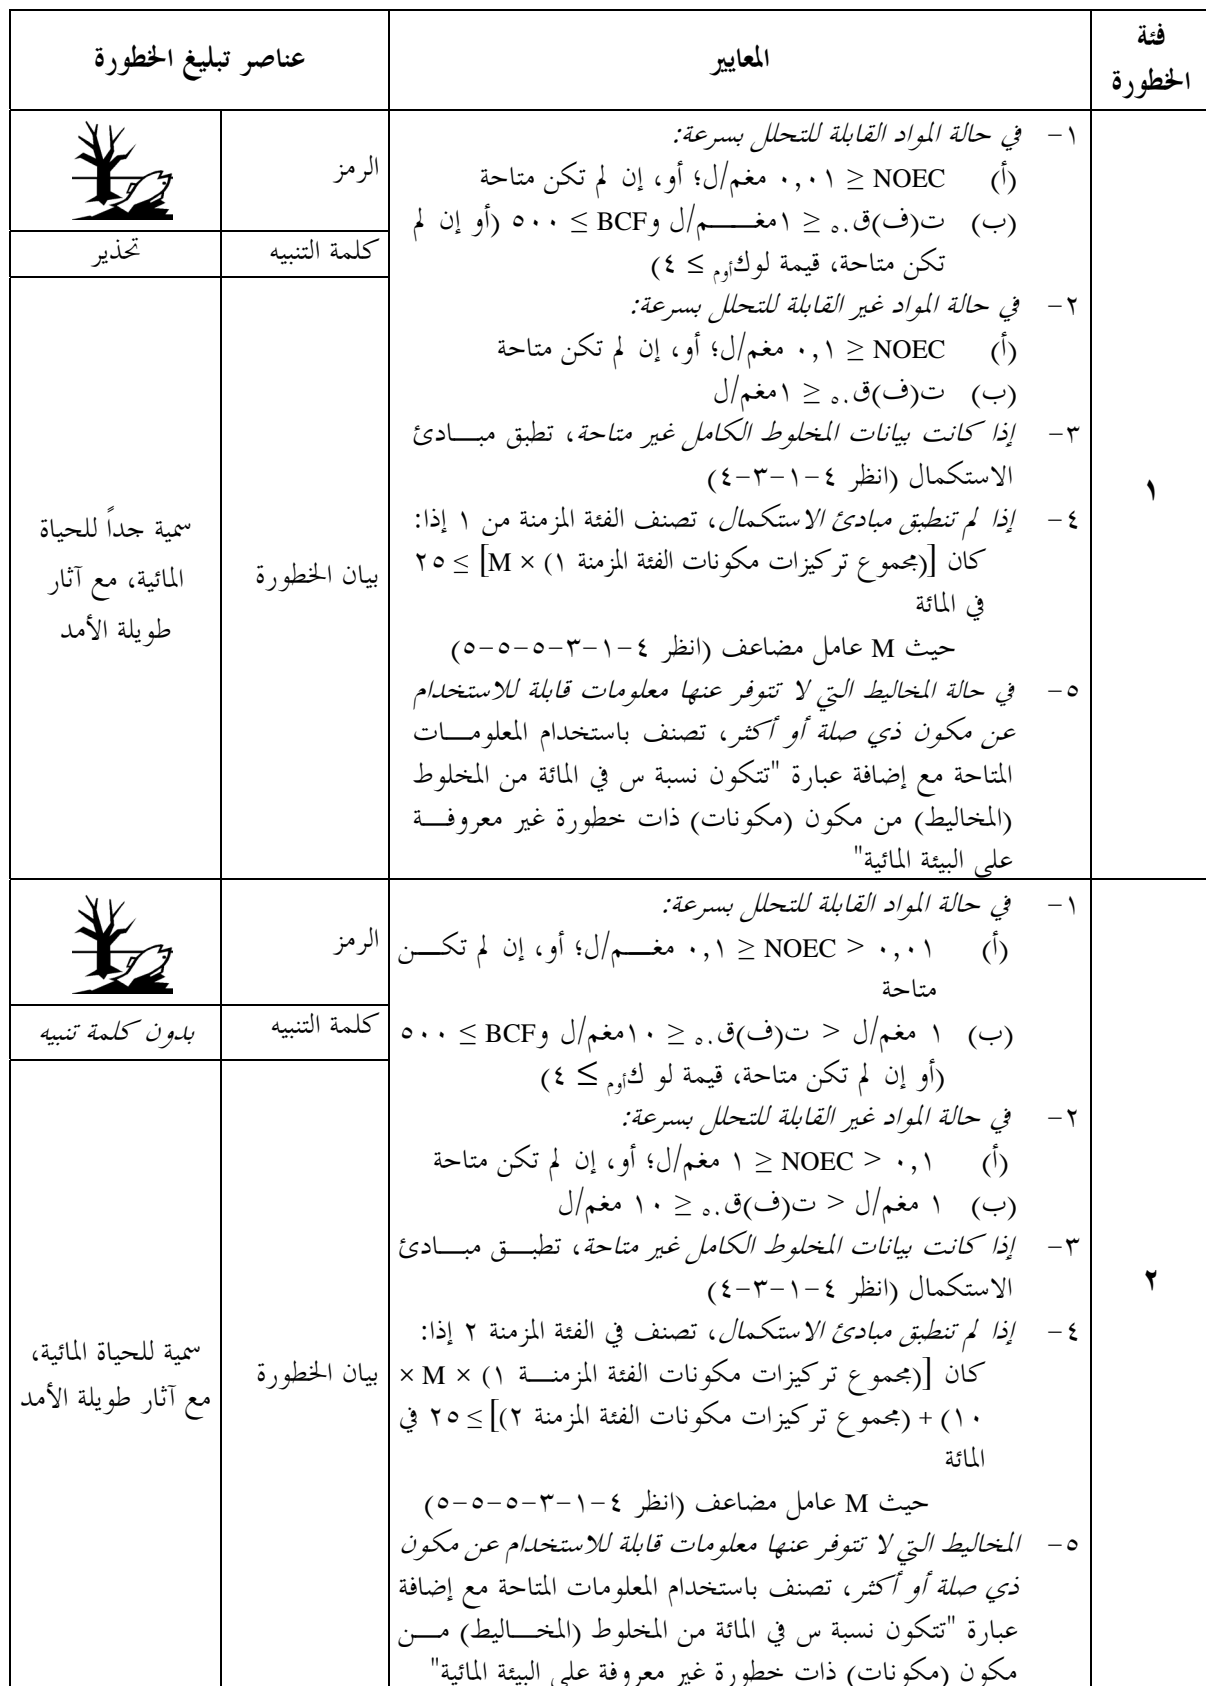 فئة
الخطورة
المعايير
عناصر تبليغ الخطورة
١
١- في حالة المواد القابلة للتحلل بسرعة:
(أ) NOEC ≤ ٠,٠١ مغم/ل؛ أو، إن لم تكن متاحة
(ب) ت(ف)ق٥٠ ≤ ١مغـــــم/ل وBCF ≥ ٥٠٠ (أو إن لم
تكن متاحة، قيمة لوكأوم ≥ ٤)
٢- في حالة المواد غير القابلة للتحلل بسرعة:
(أ) NOEC ≤ ٠,١ مغم/ل؛ أو، إن لم تكن متاحة
(ب) ت(ف)ق٥٠ ≤ ١مغم/ل
٣- إذا كانت بيانات المخلوط الكامل غير متاحة، تطبق مبـــادئ
الاستكمال (انظر ٤-١-٣-٤)
٤- إذا لم تنطبق مبادئ الاستكمال، تصنف الفئة المزمنة من ١ إذا:
كان [(مجموع تركيزات مكونات الفئة المزمنة ١) × M] ≥ ٢٥
في المائة
حيث M عامل مضاعف (انظر ٤-١-٣-٥-٥-٥)
٥- في حالة المخاليط التي لا تتوفر عنها معلومات قابلة للاستخدام
عن مكون ذي صلة أو أكثر، تصنف باستخدام المعلومـــات
المتاحة مع إضافة عبارة "تتكون نسبة س في المائة من المخلوط
(المخاليط) من مكون (مكونات) ذات خطورة غير معروفـــة
على البيئة المائية"
الرمز
كلمة التنبيه
تحذير
بيان الخطورة
سمية جداً للحياة
المائية، مع آثار
طويلة الأمد
٢
١- في حالة المواد القابلة للتحلل بسرعة:
(أ) ٠,٠١ < NOEC ≤ ٠,١ مغـــم/ل؛ أو، إن لم تكـــن
متاحة
(ب) ١ مغم/ل < ت(ف)ق٥٠ ≤ ١٠مغم/ل وBCF ≥ ٥٠٠
(أو إن لم تكن متاحة، قيمة لو كأوم ≥ ٤)
٢- في حالة المواد غير القابلة للتحلل بسرعة:
(أ) ٠,١ < NOEC ≤ ١ مغم/ل؛ أو، إن لم تكن متاحة
(ب) ١ مغم/ل < ت(ف)ق٥٠ ≤ ١٠ مغم/ل
٣- إذا كانت بيانات المخلوط الكامل غير متاحة، تطبـــق مبـــادئ
الاستكمال (انظر ٤-١-٣-٤)
٤- إذا لم تنطبق مبادئ الاستكمال، تصنف في الفئة المزمنة ٢ إذا:
كان [(مجموع تركيزات مكونات الفئة المزمنـــة ١) × M ×
١٠) + (مجموع تركيزات مكونات الفئة المزمنة ٢)] ≥ ٢٥ في
المائة
حيث M عامل مضاعف (انظر ٤-١-٣-٥-٥-٥)
٥- المخاليط التي لا تتوفر عنها معلومات قابلة للاستخدام عن مكون
ذي صلة أو أكثر، تصنف باستخدام المعلومات المتاحة مع إضافة
عبارة "تتكون نسبة س في المائة من المخلوط (المخـــاليط) مـــن
مكون (مكونات) ذات خطورة غير معروفة على البيئة المائية"
الرمز
كلمة التنبيه
بدون كلمة تنبيه
بيان الخطورة
سمية للحياة المائية،
مع آثار طويلة الأمد